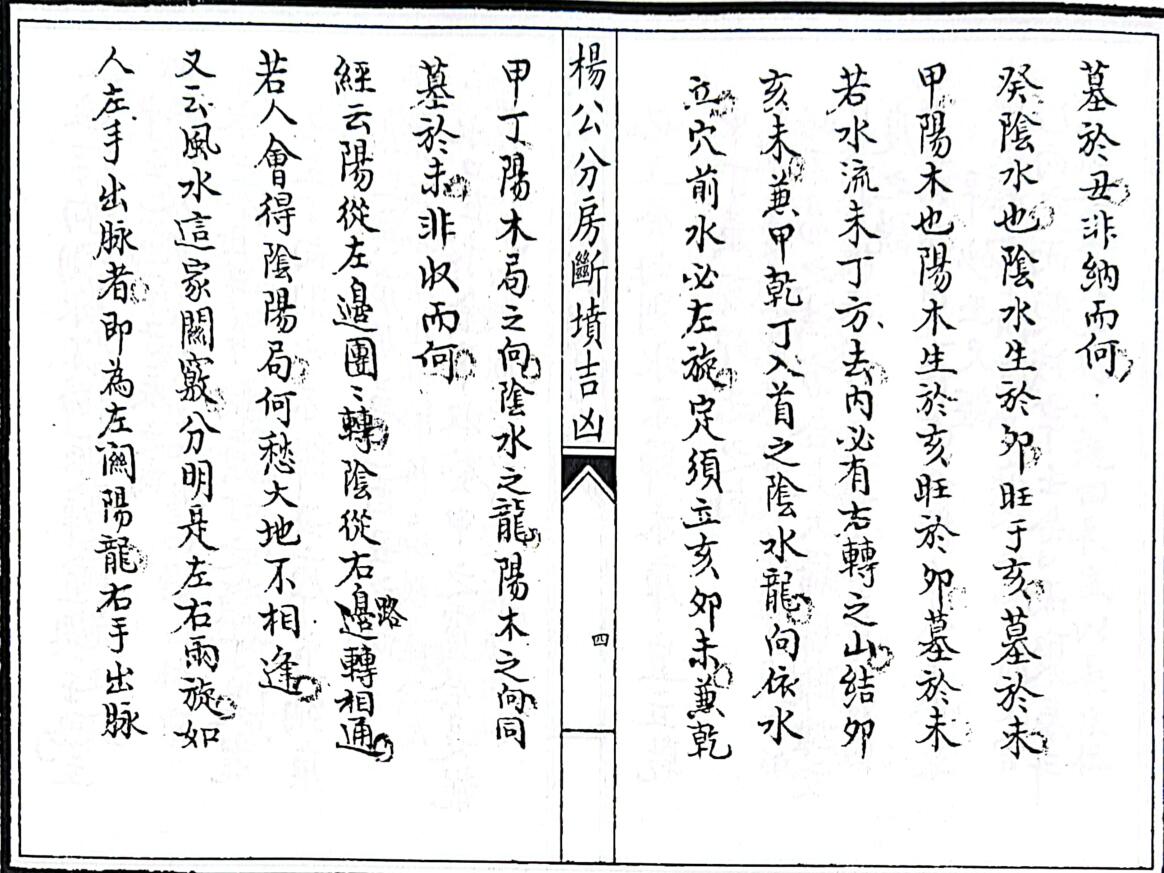 墓於丑非納而何
癸陰水也陰水生於卯旺于亥墓於未
甲陽木也陽木生於亥旺於卯墓於未
若水流未丁方去內必有右轉之山結卯
亥未兼甲乾丁入首之陰水龍向依水
立穴前水必左旋定須立亥卯未兼乾
楊公分房斷墳吉凶
四
甲丁陽木局之向陰水之龍陽木之向同
墓於未非收而何
經云陽從左邊團〻轉陰從右邊路轉相通
若人會得陰陽局何愁大地不相逢
又云風水這家關竅分明是左右兩旋如
人左手出脉者即為左關陽龍右手出脉